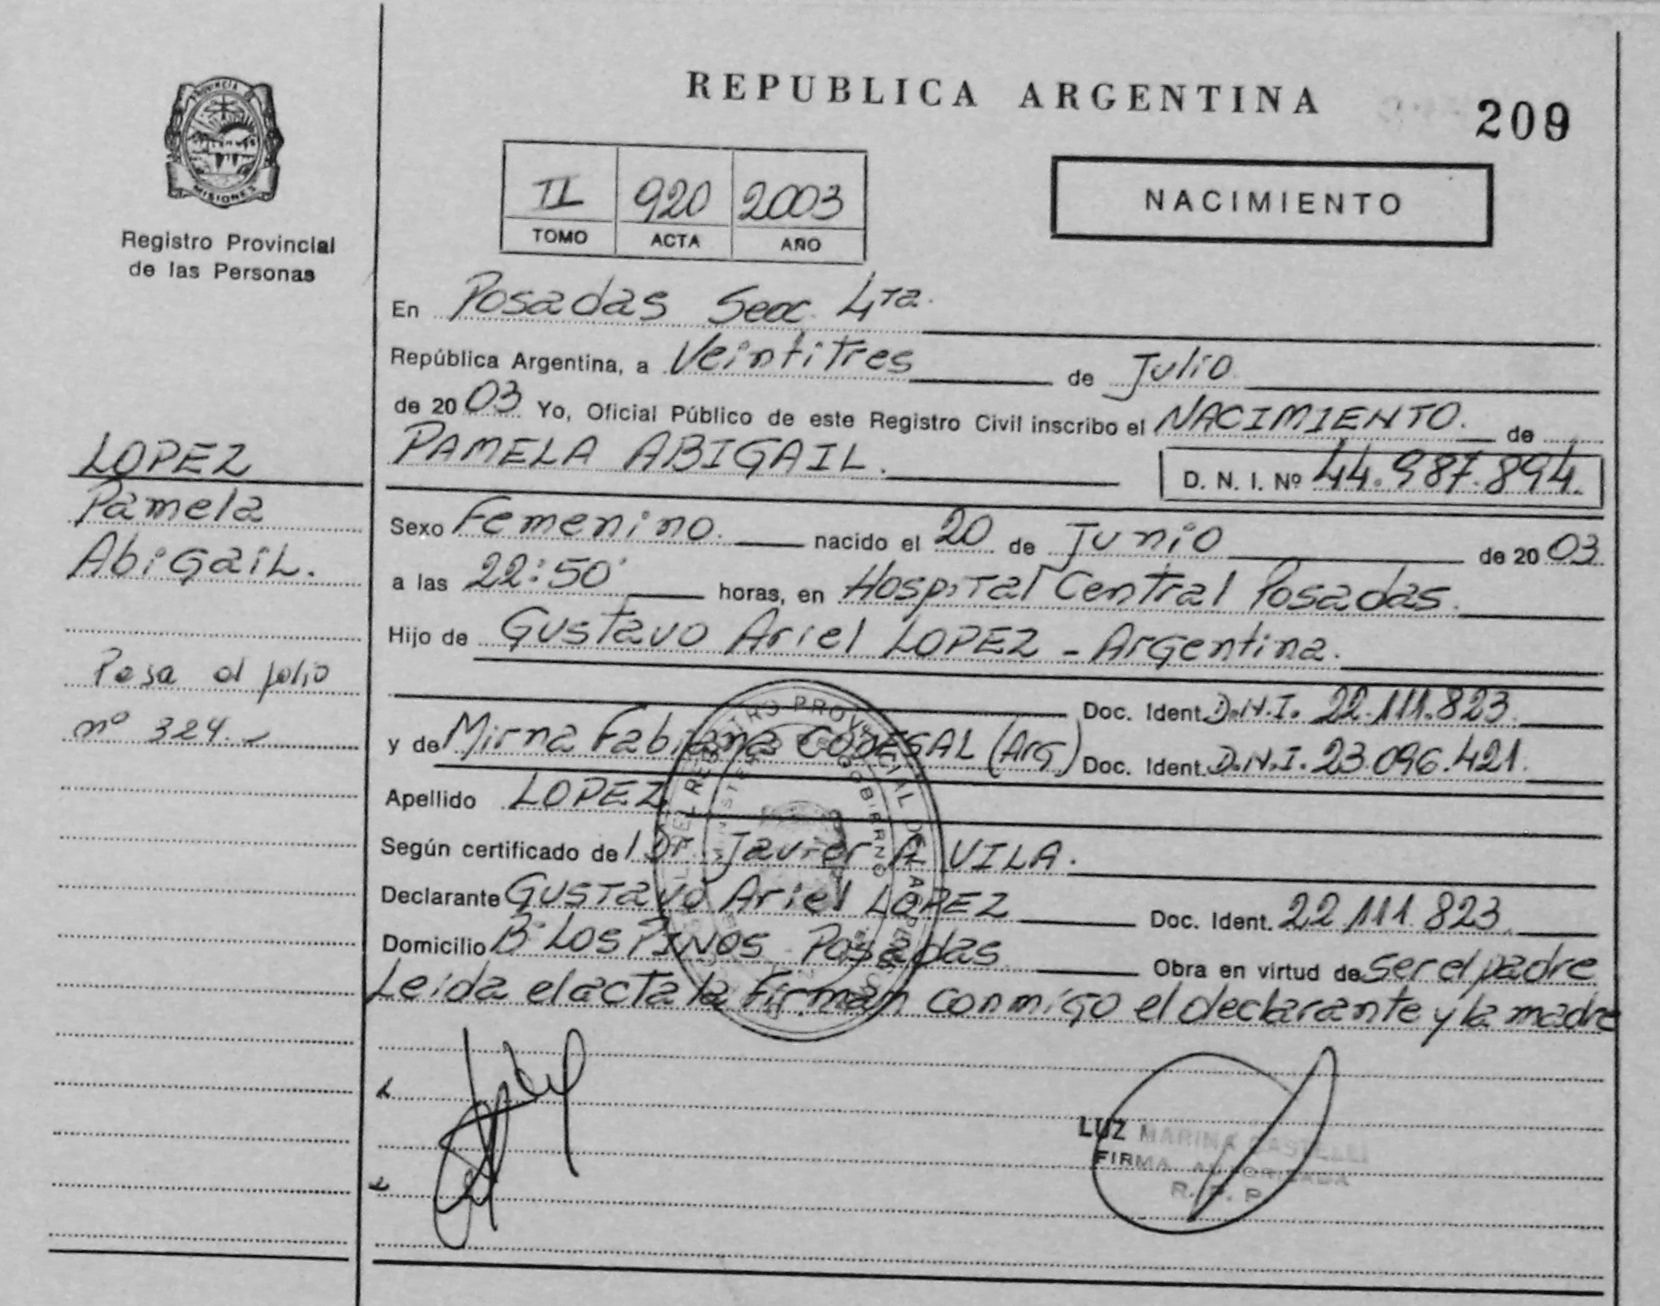 REPUBLICA ARGENTINA
209
PROVINCIA DE
MISIONES
Registro Provincial
de las Personas
II 920 2003
TOMO ACTA AÑO
NACIMIENTO
En Posadas Secc. 4ta.
República Argentina, a Veintitres de Julio
de 20 03 Yo, Oficial Público de este Registro Civil inscribo el NACIMIENTO. de
PAMELA ABIGAIL. D. N. I. Nº 44.987.894.
LOPEZ
Pamela
Abigail.
Pasa al folio
nº 324.-
Sexo Femenino. nacido el 20 de Junio de 20 03
a las 22:50' horas, en Hospital Central Posadas.
Hijo de Gustavo Ariel LOPEZ - Argentina.
Doc. Ident. D.N.I. 22.111.823
y de Mirna Fabiana CODESAL (Arg.) Doc. Ident. D.N.I. 23.096.421.
Apellido LOPEZ
Según certificado de Dr. Javier A VILA.
Declarante Gustavo Ariel LOPEZ Doc. Ident. 22.111.823
Domicilio Bº Los Pinos Posadas Obra en virtud de ser el padre
Leida el acta la firman conmigo el declarante y la madre
LUZ MARINA CASTELLI
FIRMA AUTORIZADA
R. P. P.